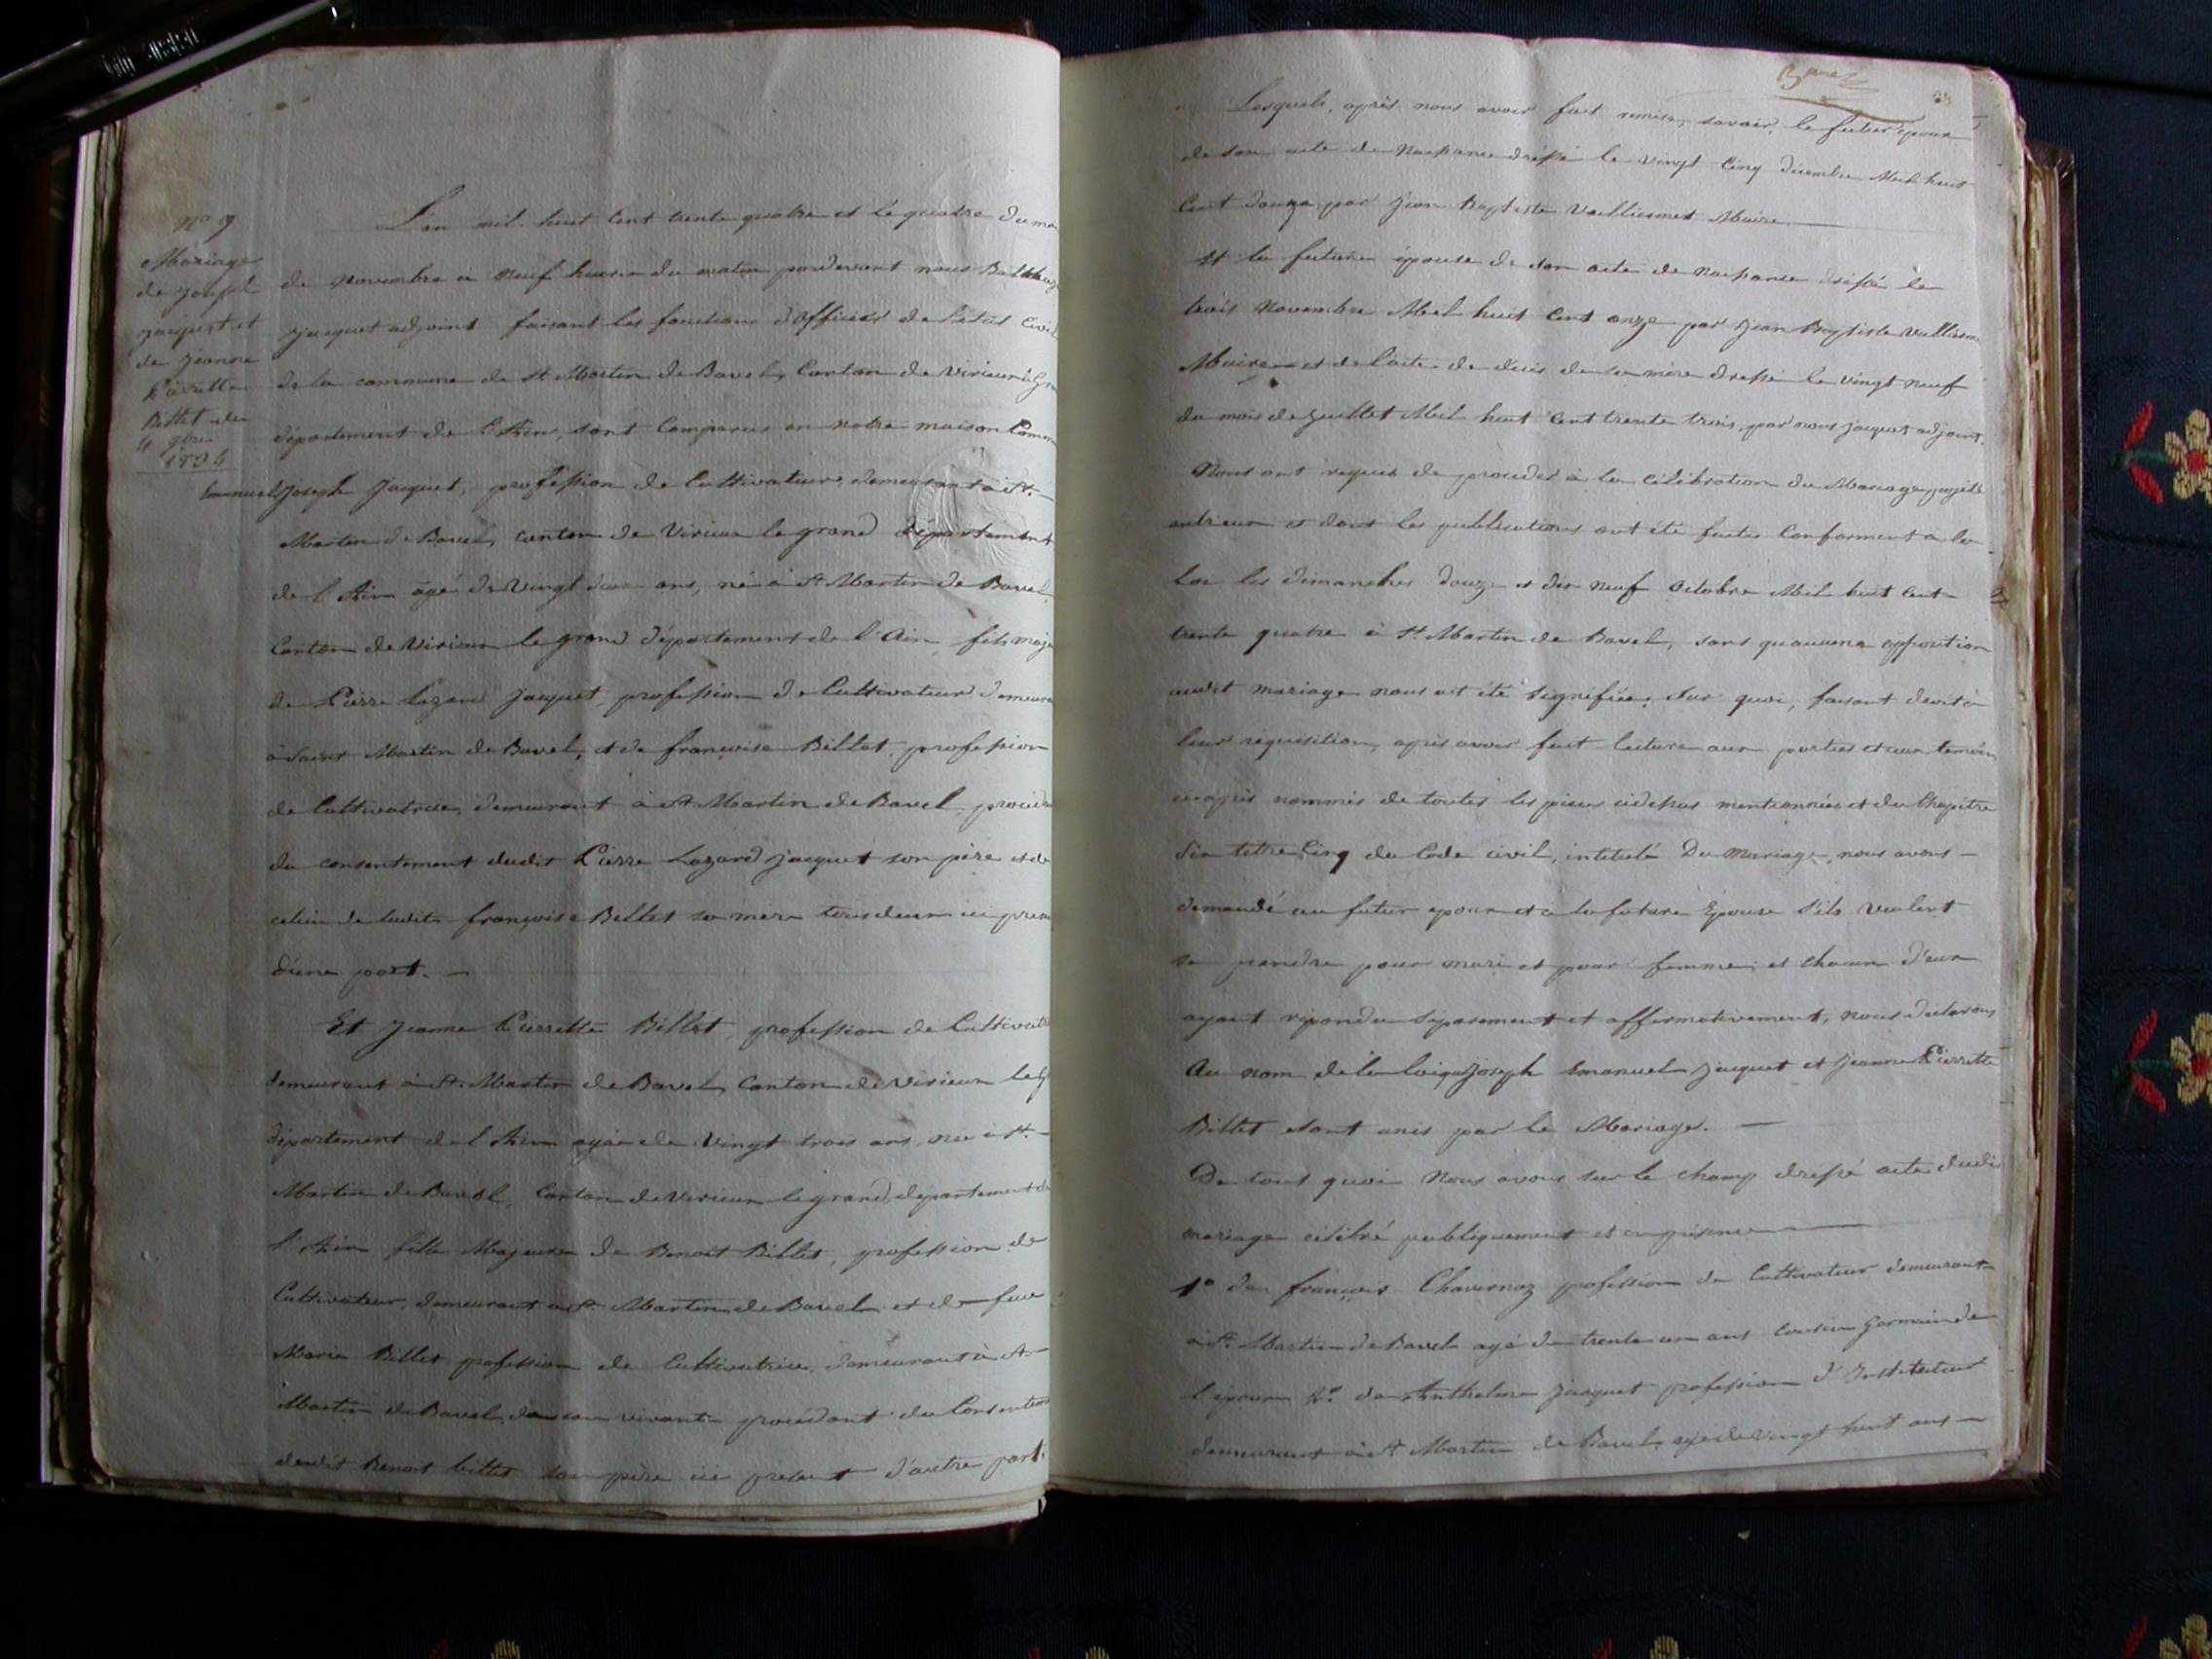 No 9
Mariage
de Joseph
jacquet et
de jeanne
Pierrette
Billet du
4 9bre
1834
L'an mil huit Cent trente quatre et le quatre du mo
de novembre à neuf heures du matin pardevant nous Balthaza
jacquet adjoint faisant les fonctions d'officier de l'état Civil
de la commune de St Martin de Bavel, Canton de Virieu le G
département de l'Ain, sont Comparus en notre maison Comm
Emanuel Joseph Jacquet, profession de Cultivateur, demeurant à St.
Martin de Bavel, canton de Virieux le grand département
de l'Ain agé de vingt deux ans, né à St Martin de Bavel,
Canton de Virieux le grand département de l'Ain, fils maje
de Pierre Lazard Jacquet, profession de Cultivateur demeura
à Saint Martin de Bavel, et de françoise Billet, profession
de Cultivatrice, demeurant à St Martin de Bavel, procéda
du consentement dudit Pierre Lazard jacquet son père et de
celui de ladite françoise Billet sa mère tous deux ici prese
d'une part. —
Et Jeanne Pierrette Billet, profession de Cultivatr
demeurant à St. Martin de Bavel, Canton de Virieux le G
département de l'Ain agée de vingt trois ans, née à St.
Martin de Bavel, Canton de Virieux le grand, département de
l'Ain fille Majeure de Benoit Billet, profession de
Cultivateur, demeurant à St. Martin de Bavel et de feue
Marie Billet profession de Cultivatrice, demeurant à St
Martin de Bavel de son vivant procédant du Consentem
dudit Benoit billet son père ici présent d'autre part.
24
Lesquels, après nous avoir fait remise, savoir, le futur époux
de son acte de Naissance dressé le vingt Cinq décembre Mil huit
Cent douze par Jean Baptiste Vuilliesmet Maire.
Et la future épouse de son acte de naissance dressé le
trois Novembre Mil huit Cent onze par Jean Baptiste Vulliesm
Maire et de l'acte de décès de sa mère dressé le vingt neuf
du mois de Juillet Mil huit Cent trente trois, par nous jacquet adjoint.
Nous ont requis de procéder à la célébration du Mariage projeté
entr'eux et dont les publications ont été faites Conforment à la
loi les dimanches douze et dix neuf Octobre Mil huit Cent
trente quatre à St. Martin de Bavel, sans qu'aucune opposition
audit mariage nous ait été signifiée; Sur quoi, faisant droit à
leur réquisition, après avoir fait lecture aux parties et aux témoins
ci après nommés de toutes les pièces cidessus mentionnées et du Chapitre
Six titre Cinq du Code civil, intitulé Du Mariage, nous avons
demandé au futur époux et à la future Epouse s'ils veulent
se prendre pour mari et pour femme; et chacun d'eux
ayant répondu séparement et affirmativement, nous déclarons
Au nom de la loi que Joseph Emanuel Jacquet et Jeanne Pierrette
Billet sont unis par le Mariage. —
De tout quoi Nous avons sur le champ dressé acte dudi
mariage célébré publiquement et en présence
1º de françois Chavirnoz profession de Cultivateur demeurant
à St. Martin de Bavel agé de trente un ans Cousin Germain de
l'époux 2º. de Anthelme Jacquet profession d'Instituteur
demeurant à St Martin de Bavel, agé de vingt huit ans —